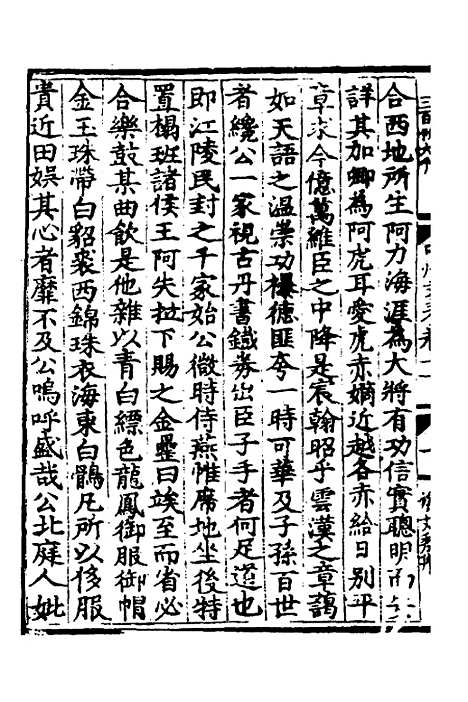 合西地所生阿力海涯為大將有功信實聰明而
詳其加卿為阿虎耳愛虎赤嫡近越各赤給日別平
章求今億萬維臣之中降是宸翰昭乎雲漢之章藹
如天語之温崇功檡德匪夸一時可華及子孫百世
者纔公一家視古丹書鐵券出臣子手者何足道也
即江陵民封之千家始公微時侍燕惟席地坐後特
置榻班諸侯王阿失拉下賜之金墨曰竢至而省必
合樂鼓某曲飲是他雜以青白縹色龍鳳御服御帽
金玉珠帶白貂裘西錦珠衣海東白鶻凡所以侈服
貴近田娱其心者靡不及公嗚呼盛哉公北庭人妣